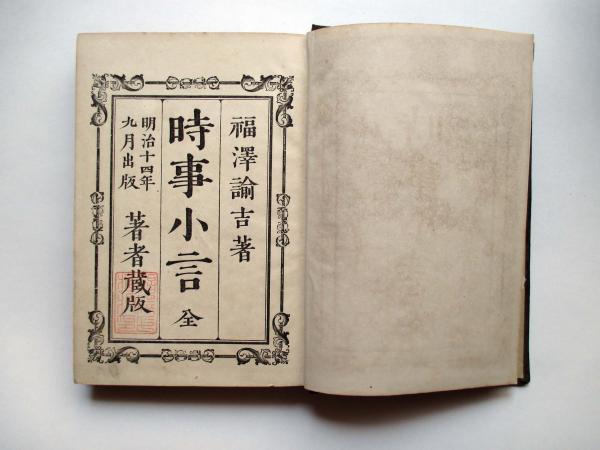 福澤諭吉著
時事小言 全
明治十四年
九月出版
著者藏版